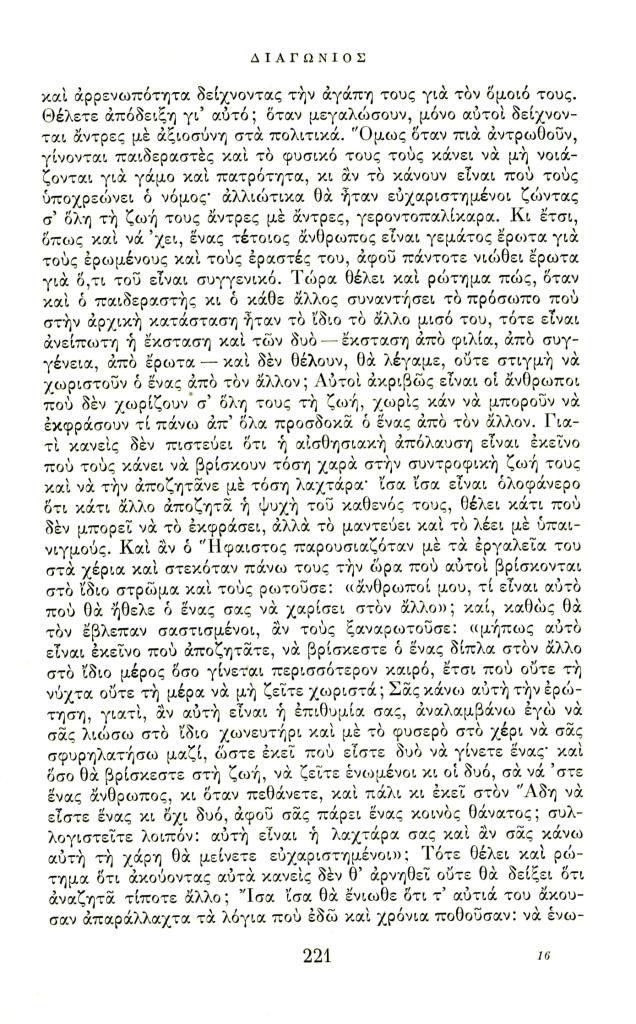 ΔΙΑΓΩΝΙΟΣ
καὶ ἀρρενωπότητα δείχνοντας τὴν ἀγάπη τους γιὰ τὸν ὅμοιό τους.
Θέλετε ἀπόδειξη γι' αὐτό; ὅταν μεγαλώσουν, μόνο αὐτοὶ δείχνον-
ται ἄντρες μὲ ἀξιοσύνη στὰ πολιτικά. Ὅμως ὅταν πιὰ ἀντρωθοῦν,
γίνονται παιδεραστὲς καὶ τὸ φυσικό τους τοὺς κάνει νὰ μὴ νοιά-
ζονται γιὰ γάμο καὶ πατρότητα, κι ἂν τὸ κάνουν εἶναι ποὺ τοὺς
ὑποχρεώνει ὁ νόμος· ἀλλιώτικα θὰ ἦταν εὐχαριστημένοι ζώντας
σ' ὅλη τὴ ζωή τους ἄντρες μὲ ἄντρες, γεροντοπαλίκαρα. Κι ἔτσι,
ὅπως καὶ νά 'χει, ἕνας τέτοιος ἄνθρωπος εἶναι γεμάτος ἔρωτα γιὰ
τοὺς ἐρωμένους καὶ τοὺς ἐραστές του, ἀφοῦ πάντοτε νιώθει ἔρωτα
γιὰ ὅ,τι τοῦ εἶναι συγγενικό. Τώρα θέλει καὶ ρώτημα πώς, ὅταν
καὶ ὁ παιδεραστὴς κι ὁ κάθε ἄλλος συναντήσει τὸ πρόσωπο ποὺ
στὴν ἀρχικὴ κατάσταση ἦταν τὸ ἴδιο τὸ ἄλλο μισό του, τότε εἶναι
ἀνείπωτη ἡ ἔκσταση καὶ τῶν δυὸ — ἔκσταση ἀπὸ φιλία, ἀπὸ συγ-
γένεια, ἀπὸ ἔρωτα — καὶ δὲν θέλουν, θὰ λέγαμε, οὔτε στιγμὴ νὰ
χωριστοῦν ὁ ἕνας ἀπὸ τὸν ἄλλον; Αὐτοὶ ἀκριβῶς εἶναι οἱ ἄνθρωποι
ποὺ δὲν χωρίζουν σ' ὅλη τους τὴ ζωή, χωρὶς κάν νὰ μποροῦν νὰ
ἐκφράσουν τί πάνω ἀπ' ὅλα προσδοκᾶ ὁ ἕνας ἀπὸ τὸν ἄλλον. Για-
τὶ κανεὶς δὲν πιστεύει ὅτι ἡ αἰσθησιακὴ ἀπόλαυση εἶναι ἐκεῖνο
ποὺ τοὺς κάνει νὰ βρίσκουν τόση χαρὰ στὴν συντροφικὴ ζωή τους
καὶ νὰ τὴν ἀποζητᾶνε μὲ τόση λαχτάρα· ἴσα ἴσα εἶναι ὁλοφάνερο
ὅτι κάτι ἄλλο ἀποζητᾶ ἡ ψυχὴ τοῦ καθενός τους, θέλει κάτι ποὺ
δὲν μπορεῖ νὰ τὸ ἐκφράσει, ἀλλὰ τὸ μαντεύει καὶ τὸ λέει μὲ ὑπαι-
νιγμούς. Καὶ ἂν ὁ Ἥφαιστος παρουσιαζόταν μὲ τὰ ἐργαλεῖα του
στὰ χέρια καὶ στεκόταν πάνω τους τὴν ὥρα ποὺ αὐτοὶ βρίσκονται
στὸ ἴδιο στρῶμα καὶ τοὺς ρωτοῦσε: «ἄνθρωποί μου, τί εἶναι αὐτὸ
ποὺ θὰ ἤθελε ὁ ἕνας σας νὰ χαρίσει στὸν ἄλλο»; καί, καθὼς θὰ
τὸν ἔβλεπαν σαστισμένοι, ἂν τοὺς ξαναρωτοῦσε: «μήπως αὐτὸ
εἶναι ἐκεῖνο ποὺ ἀποζητᾶτε, νὰ βρίσκεστε ὁ ἕνας δίπλα στὸν ἄλλο
στὸ ἴδιο μέρος ὅσο γίνεται περισσότερον καιρό, ἔτσι ποὺ οὔτε τὴ
νύχτα οὔτε τὴ μέρα νὰ μὴ ζεῖτε χωριστά; Σᾶς κάνω αὐτὴ τὴν ἐρώ-
τηση, γιατί, ἂν αὐτὴ εἶναι ἡ ἐπιθυμία σας, ἀναλαμβάνω ἐγὼ νὰ
σᾶς λιώσω στὸ ἴδιο χωνευτήρι καὶ μὲ τὸ φυσερὸ στὸ χέρι νὰ σᾶς
σφυρηλατήσω μαζί, ὥστε ἐκεῖ ποὺ εἶστε δυὸ νὰ γίνετε ἕνας· καὶ
ὅσο θὰ βρίσκεστε στὴ ζωή, νὰ ζεῖτε ἑνωμένοι κι οἱ δυό, σὰ νά 'στε
ἕνας ἄνθρωπος, κι ὅταν πεθάνετε, καὶ πάλι κι ἐκεῖ στὸν Ἅδη νὰ
εἶστε ἕνας κι ὄχι δυό, ἀφοῦ σᾶς πάρει ἕνας κοινὸς θάνατος; συλ-
λογιστεῖτε λοιπόν: αὐτὴ εἶναι ἡ λαχτάρα σας καὶ ἂν σᾶς κάνω
αὐτὴ τὴ χάρη θὰ μείνετε εὐχαριστημένοι»; Τότε θέλει καὶ ρώ-
τημα ὅτι ἀκούοντας αὐτὰ κανεὶς δὲν θ' ἀρνηθεῖ οὔτε θὰ δείξει ὅτι
ἀναζητᾶ τίποτε ἄλλο; Ἴσα ἴσα θὰ ἔνιωθε ὅτι τ' αὐτιά του ἄκου-
σαν ἀπαράλλαχτα τὰ λόγια ποὺ ἐδῶ καὶ χρόνια ποθοῦσαν: νὰ ἑνω-
221
16